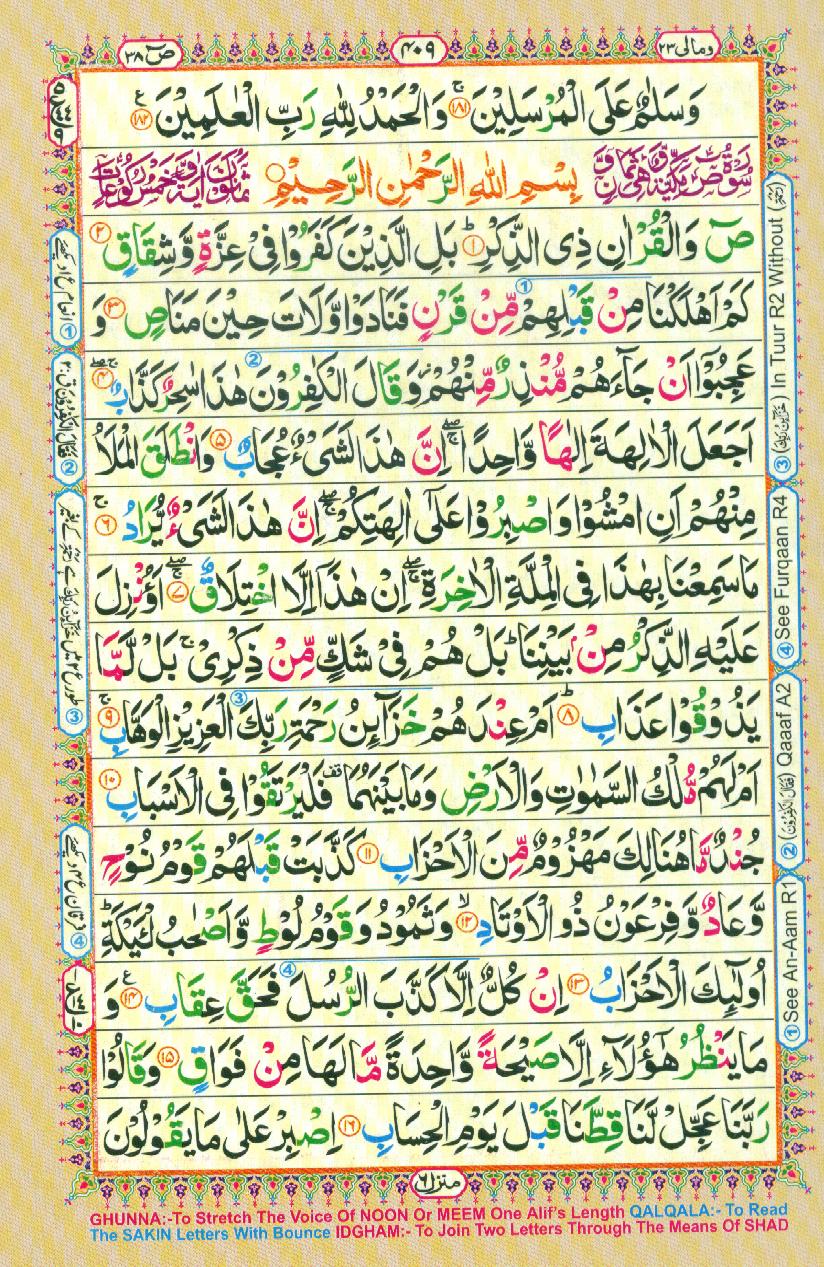 ومالی ۲۳
۴۰۹
صٓ ۳۸
وَسَلٰمٌ عَلَى الْمُرْسَلِیْنَ ۚ﴿۱۸۱﴾ وَالْحَمْدُ لِلّٰهِ رَبِّ الْعٰلَمِیْنَ ﴿۱۸۲﴾ ع
سُوْرَةُ صٓ مَكِّیَّةٌ وَّهِیَ ثَمَانٌ وَّ بِسْمِ اللّٰهِ الرَّحْمٰنِ الرَّحِیْمِ ثَمَانُوْنَ اٰیَةً وَّخَمْسُ رُكُوْعَاتٍ
صٓ وَالْقُرْاٰنِ ذِی الذِّكْرِ ؕ﴿۱﴾ بَلِ الَّذِیْنَ كَفَرُوْا فِیْ عِزَّةٍ وَّشِقَاقٍ ﴿۲﴾
كَمْ اَهْلَكْنَا مِنْ قَبْلِهِمْ ① مِّنْ قَرْنٍ فَنَادَوْا وَّلَاتَ حِیْنَ مَنَاصٍ ﴿۳﴾ وَ
عَجِبُوْۤا اَنْ جَآءَهُمْ مُّنْذِرٌ مِّنْهُمْ ؗ وَقَالَ الْكٰفِرُوْنَ ② هٰذَا سٰحِرٌ كَذَّابٌ ﴿۴﴾
اَجَعَلَ الْاٰلِهَةَ اِلٰهًا وَّاحِدًا ۖۚ اِنَّ هٰذَا لَشَیْءٌ عُجَابٌ ﴿۵﴾ وَانْطَلَقَ الْمَلَاُ
مِنْهُمْ اَنِ امْشُوْا وَاصْبِرُوْا عَلٰۤى اٰلِهَتِكُمْ ۖۚ اِنَّ هٰذَا لَشَیْءٌ یُّرَادُ ۚ﴿۶﴾
مَا سَمِعْنَا بِهٰذَا فِی الْمِلَّةِ الْاٰخِرَةِ ۖۚ اِنْ هٰذَاۤ اِلَّا اخْتِلَاقٌ ۖۚ﴿۷﴾ ءَاُنْزِلَ
عَلَیْهِ الذِّكْرُ مِنْۢ بَیْنِنَا ؕ بَلْ هُمْ فِیْ شَكٍّ مِّنْ ذِكْرِیْ ۚ بَلْ لَّمَّا
یَذُوْقُوْا عَذَابِ ؕ﴿۸﴾ اَمْ عِنْدَهُمْ خَزَآئِنُ رَحْمَةِ رَبِّكَ ③ الْعَزِیْزِ الْوَهَّابِ ۚ﴿۹﴾
اَمْ لَهُمْ مُّلْكُ السَّمٰوٰتِ وَالْاَرْضِ وَمَا بَیْنَهُمَا ۫ فَلْیَرْتَقُوْا فِی الْاَسْبَابِ ﴿۱۰﴾
جُنْدٌ مَّا هُنَالِكَ مَهْزُوْمٌ مِّنَ الْاَحْزَابِ ﴿۱۱﴾ كَذَّبَتْ قَبْلَهُمْ قَوْمُ نُوْحٍ
وَّعَادٌ وَّفِرْعَوْنُ ذُو الْاَوْتَادِ ۙ﴿۱۲﴾ وَثَمُوْدُ وَقَوْمُ لُوْطٍ وَّاَصْحٰبُ لْـَٔیْكَةِ ؕ
اُولٰٓئِكَ الْاَحْزَابُ ﴿۱۳﴾ اِنْ كُلٌّ اِلَّا كَذَّبَ الرُّسُلَ ④ فَحَقَّ عِقَابِ ﴿۱۴﴾ ع وَ
مَا یَنْظُرُ هٰۤؤُلَآءِ اِلَّا صَیْحَةً وَّاحِدَةً مَّا لَهَا مِنْ فَوَاقٍ ﴿۱۵﴾ وَقَالُوْا
رَبَّنَا عَجِّلْ لَّنَا قِطَّنَا قَبْلَ یَوْمِ الْحِسَابِ ﴿۱۶﴾ اِصْبِرْ عَلٰى مَا یَقُوْلُوْنَ
منزل ۶
① See An-Aam R1
② (فَقَالَ الْكٰفِرُوْنَ) Qaaaf A2
③ In Tuur R2 Without
④ See Furqaan R4
GHUNNA:-To Stretch The Voice Of NOON Or MEEM One Alif's Length QALQALA:- To Read
The SAKIN Letters With Bounce IDGHAM:- To Join Two Letters Through The Means Of SHAD